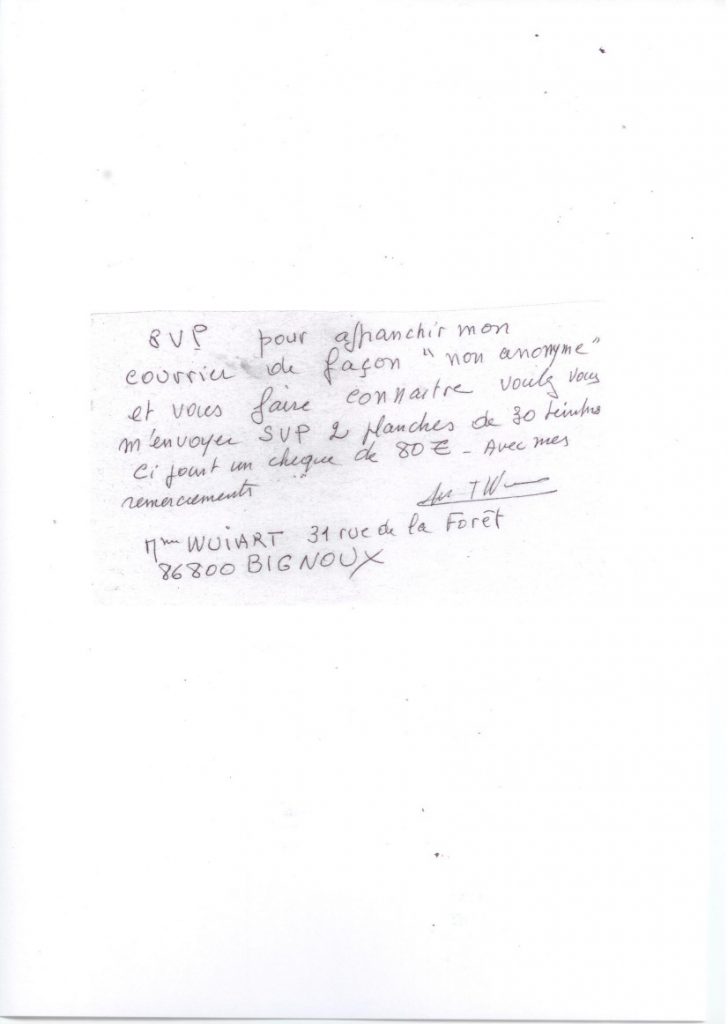 SVP pour affranchir mon
courrier de façon "non anonyme"
et vous faire connaitre voulez vous
m'envoyer SVP 2 planches de 30 timbres
Ci joint un cheque de 80 € - Avec mes
remerciements
Mme WUIART 31 rue de la Forêt
86800 BIGNOUX